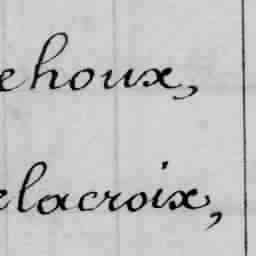 ehoux,
elacroix,